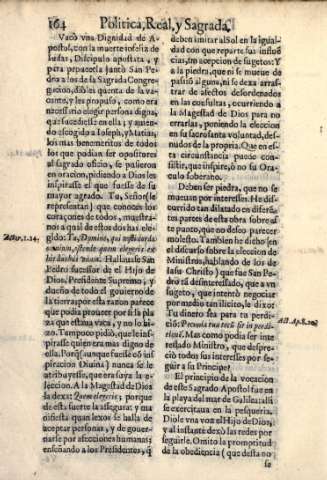 164 Politica, Real, y Sagrada.
Vacò vna Dignidad de A-
postol, con la muerte infelix de
Iudas, Discipulo apostata, y
para proueerla juntò San Pe-
dro a los de su sagrada Congre
gacion, dioles quenta de la va-
cante, y les propuso, como era
necessario elegir persona digna,
q̃ sucediesse en ella; y auien-
do escogido a Ioseph, y Matias,
los mas benemeritos de todos
los que podian ser opositores
al sagrado oficio, se pusieron
en oracion, pidiendo a Dios les
inspirasse el que fuesse de su
mayor agrado. Tu, Señor (le
representan) que conoces los
coraçones de todos, muestra-
nos a qual de estos dos has ele-
gido: Tu, Domine, qui nosti corda
omnium, ostende quem elegeris ex
his duobus vnum. Hallauase San
Pedro sucessor de el Hijo de
Dios, Presidente Supremo, y
dueño de todo el gouierno de
la tierra; por esta razon parece
que podia proueer por si la pla
ça que estaua vaca, y no lo hi-
zo. Tampoco pidiò, que le ins-
pirasse quien era mas digno de
ella. Porq̃ (aunque fuesse cõ ins
piracion Diuina) nunca se le
atribuyesse, que era suya la e-
leccion. A la Magestad de Dios
la dexa: Quem elegeris; porque
de esta suerte la assegura: y ma
nifiesta quan lexos se halla de
aceptar personas, y de gouer-
narse por afecciones humanas;
enseñando a los Presidentes, q̃
deben imitar al Sol en la igual-
dad con que reparte sus influẽ
cias, sin acepcion de sugetos: Y
a la piedra, que ni se mueue de
passiõ alguna, ni se dexa arras-
trar de afectos desordenados
en las consultas, ocurriendo a
la Magestad de Dios para no
errarlas, poniendo la eleccion
en su sacrosanta voluntad, des-
nudos de la propria. Que en es-
ta circunstancia puede con-
sistir, que inspire, ò no su Ora-
culo soberano.
Deben ser piedra, que no se
mueuan por interesses. He dis-
currido tan dilatado en diferẽ-
tes partes de esta obra sobre es-
te punto, que no deseo parecer
molesto. Tambien he dicho (en
el discurso sobre la eleccion de
Ministros, hablando de los de
Iesu-Christo) que fue San Pe-
dro tã desinteressado, que a vn
sugeto, que intentò negociar
por medio tan ilicito, le dixo:
Tu dinero sea para tu perdi-
cion: Pecunia tua tecũ sit in perdi-
tionem. Mas como podia ser inte
ressado Ministro, que despre-
ciò todos sus interesses por se-
guir a su Principe?
El principio de la vocacion
de este Sagrado Apostol fue en
la playa del mar de Galilea: alli
se exercitaua en la pesqueria.
Diole vna voz el Hijo de Dios,
y al instante dexò las redes por
seguirle. Omito la promptitud
de la obediencia (que desta no
se
Actor. 1. 24.
Act. Ap. 8. 20.